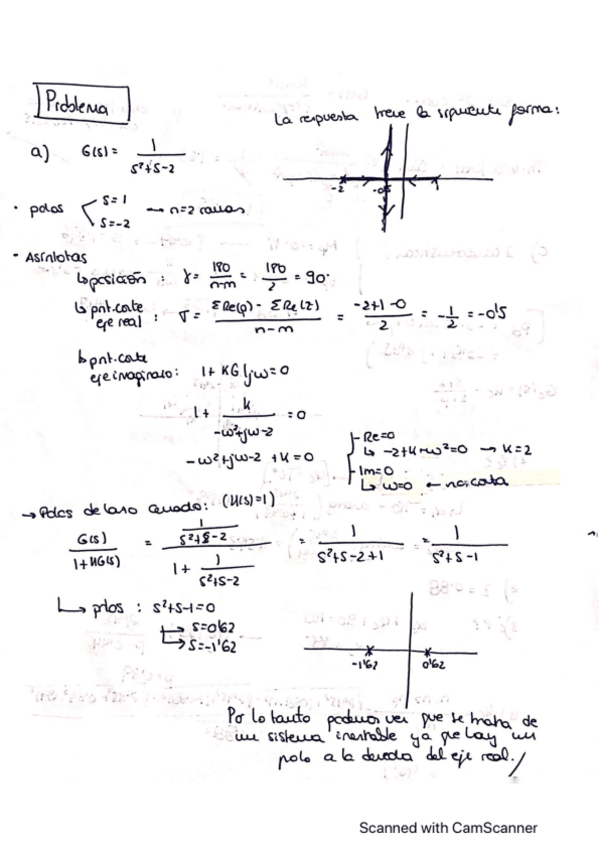 Problema
La respuesta tiene la siguiente forma:
a) G(s) = 1 / (s²+s-2)
-2 -0'5 1
· polos s=1 s=-2 → n=2 ramas
- Asíntotas
↳ posición : γ = 180/(n-m) = 180/2 = 90·
↳ pnt.corte eje real : σ = (ΣRe(p) - ΣRe(z))/(n-m) = (-2+1-0)/2 = -1/2 = -0'5
↳ pnt.corte
eje imaginario: 1+KG|jω=0
1 + k/(-ω²+jω-2) = 0
-ω²+jω-2 + k = 0
Re=0
↳ -2+k-ω²=0 → k=2
Im=0
↳ ω=0 ← no corta
→ Polos de lazo cerrado: (H(s)=1)
G(s)/(1+HG(s)) = (1/(s²+s-2))/(1 + 1/(s²+s-2)) = 1/(s²+s-2+1) = 1/(s²+s-1)
↳ polos : s²+s-1=0
↳ s=0'62
↳ s=-1'62
-1'62 0'62
Por lo tanto podemos ver que se trata de
un sistema inestable ya que hay un
polo a la derecha del eje real./
Scanned with CamScanner